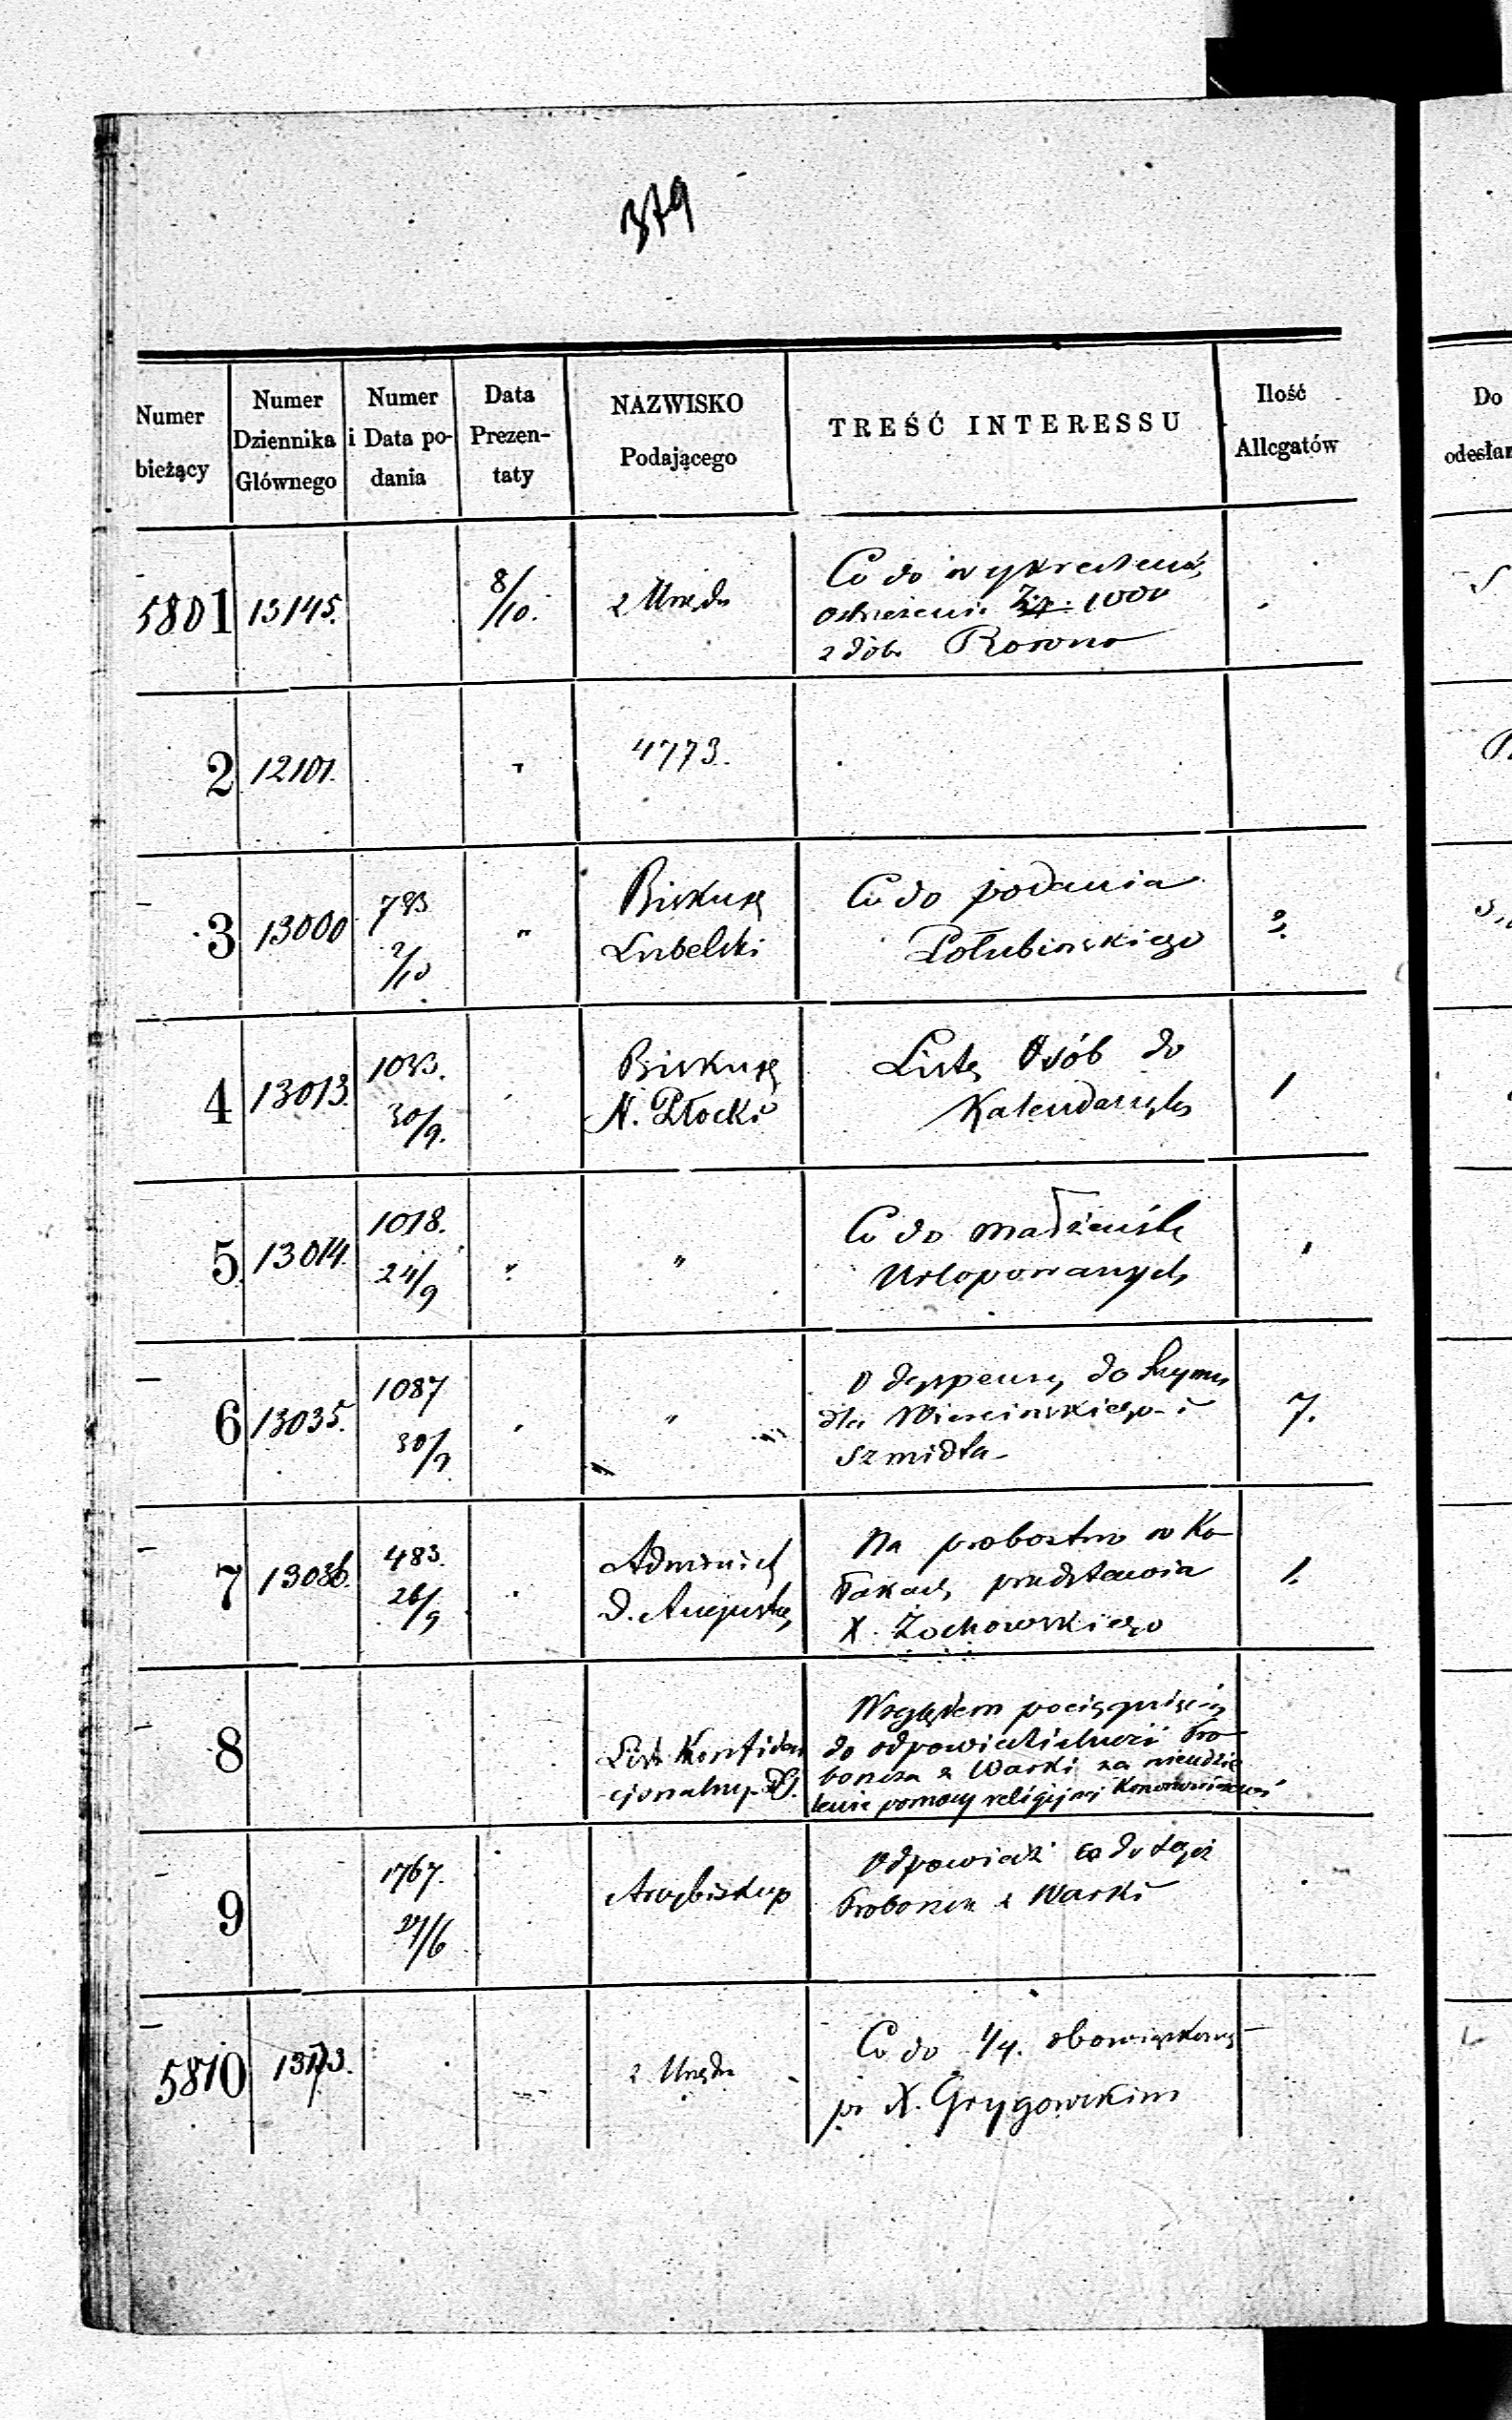 379
Numer bieżący
Numer Dziennika Głównego
Numer i Data podania
Data Prezentaty
NAZWISKO Podającego
TREŚĆ INTERESSU
Ilość Allegatów
Do
odesłan
5801 13145. 8/10. z Urzędu
Co do wykreślenia
ostrzeżenia Zł. 1000
z dóbr Rowno
2 12101. " 4773.
3 13000 793 2/10 "
Biskup
Lubelski
Co do podania
Połubińskiego
2.
4 13013. 1033. 30/9.
Biskup
N. Płocki
Listę Osób do
Kalendarza
1
5 13014. 1018. 24/9 " "
Co do małżeństw
Urlopowanych
6 13035. 1087 30/9 "
O dyspensę do Rzymu
dla i
Szmidta
7.
7 13036. 483. 26/9
Administ
D. Augustow
Na probostwo w Ko
łakach przedstawia
X. Żochowskiego
1.
8
List Konfiden
cjonalny
Względem pociągnięcia
do odpowiedzialności Pro
boszcza z Warki za nieudzie
lenie pomocy religijnej
9 1767. 27/6
Arcybiskup
Odpowiedź co do tegoż
Proboszcza z Warki
5810 13173. z Urzędu
Co do 1/4. obowiązkowej
po X. Grygowskim